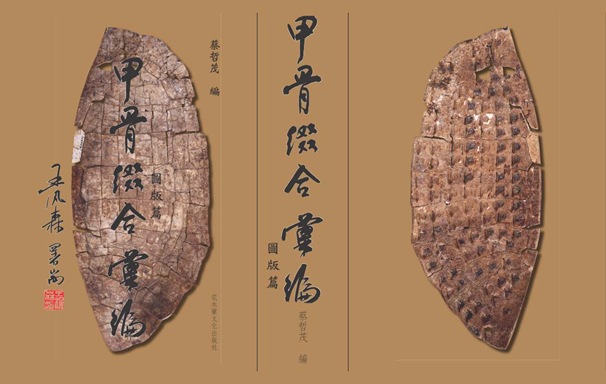 甲骨綴合彙編
圖版篇
蔡哲茂 編
蔡哲茂 編
甲骨綴合彙編
圖版篇
花木蘭文化出版社
王汎森 署耑